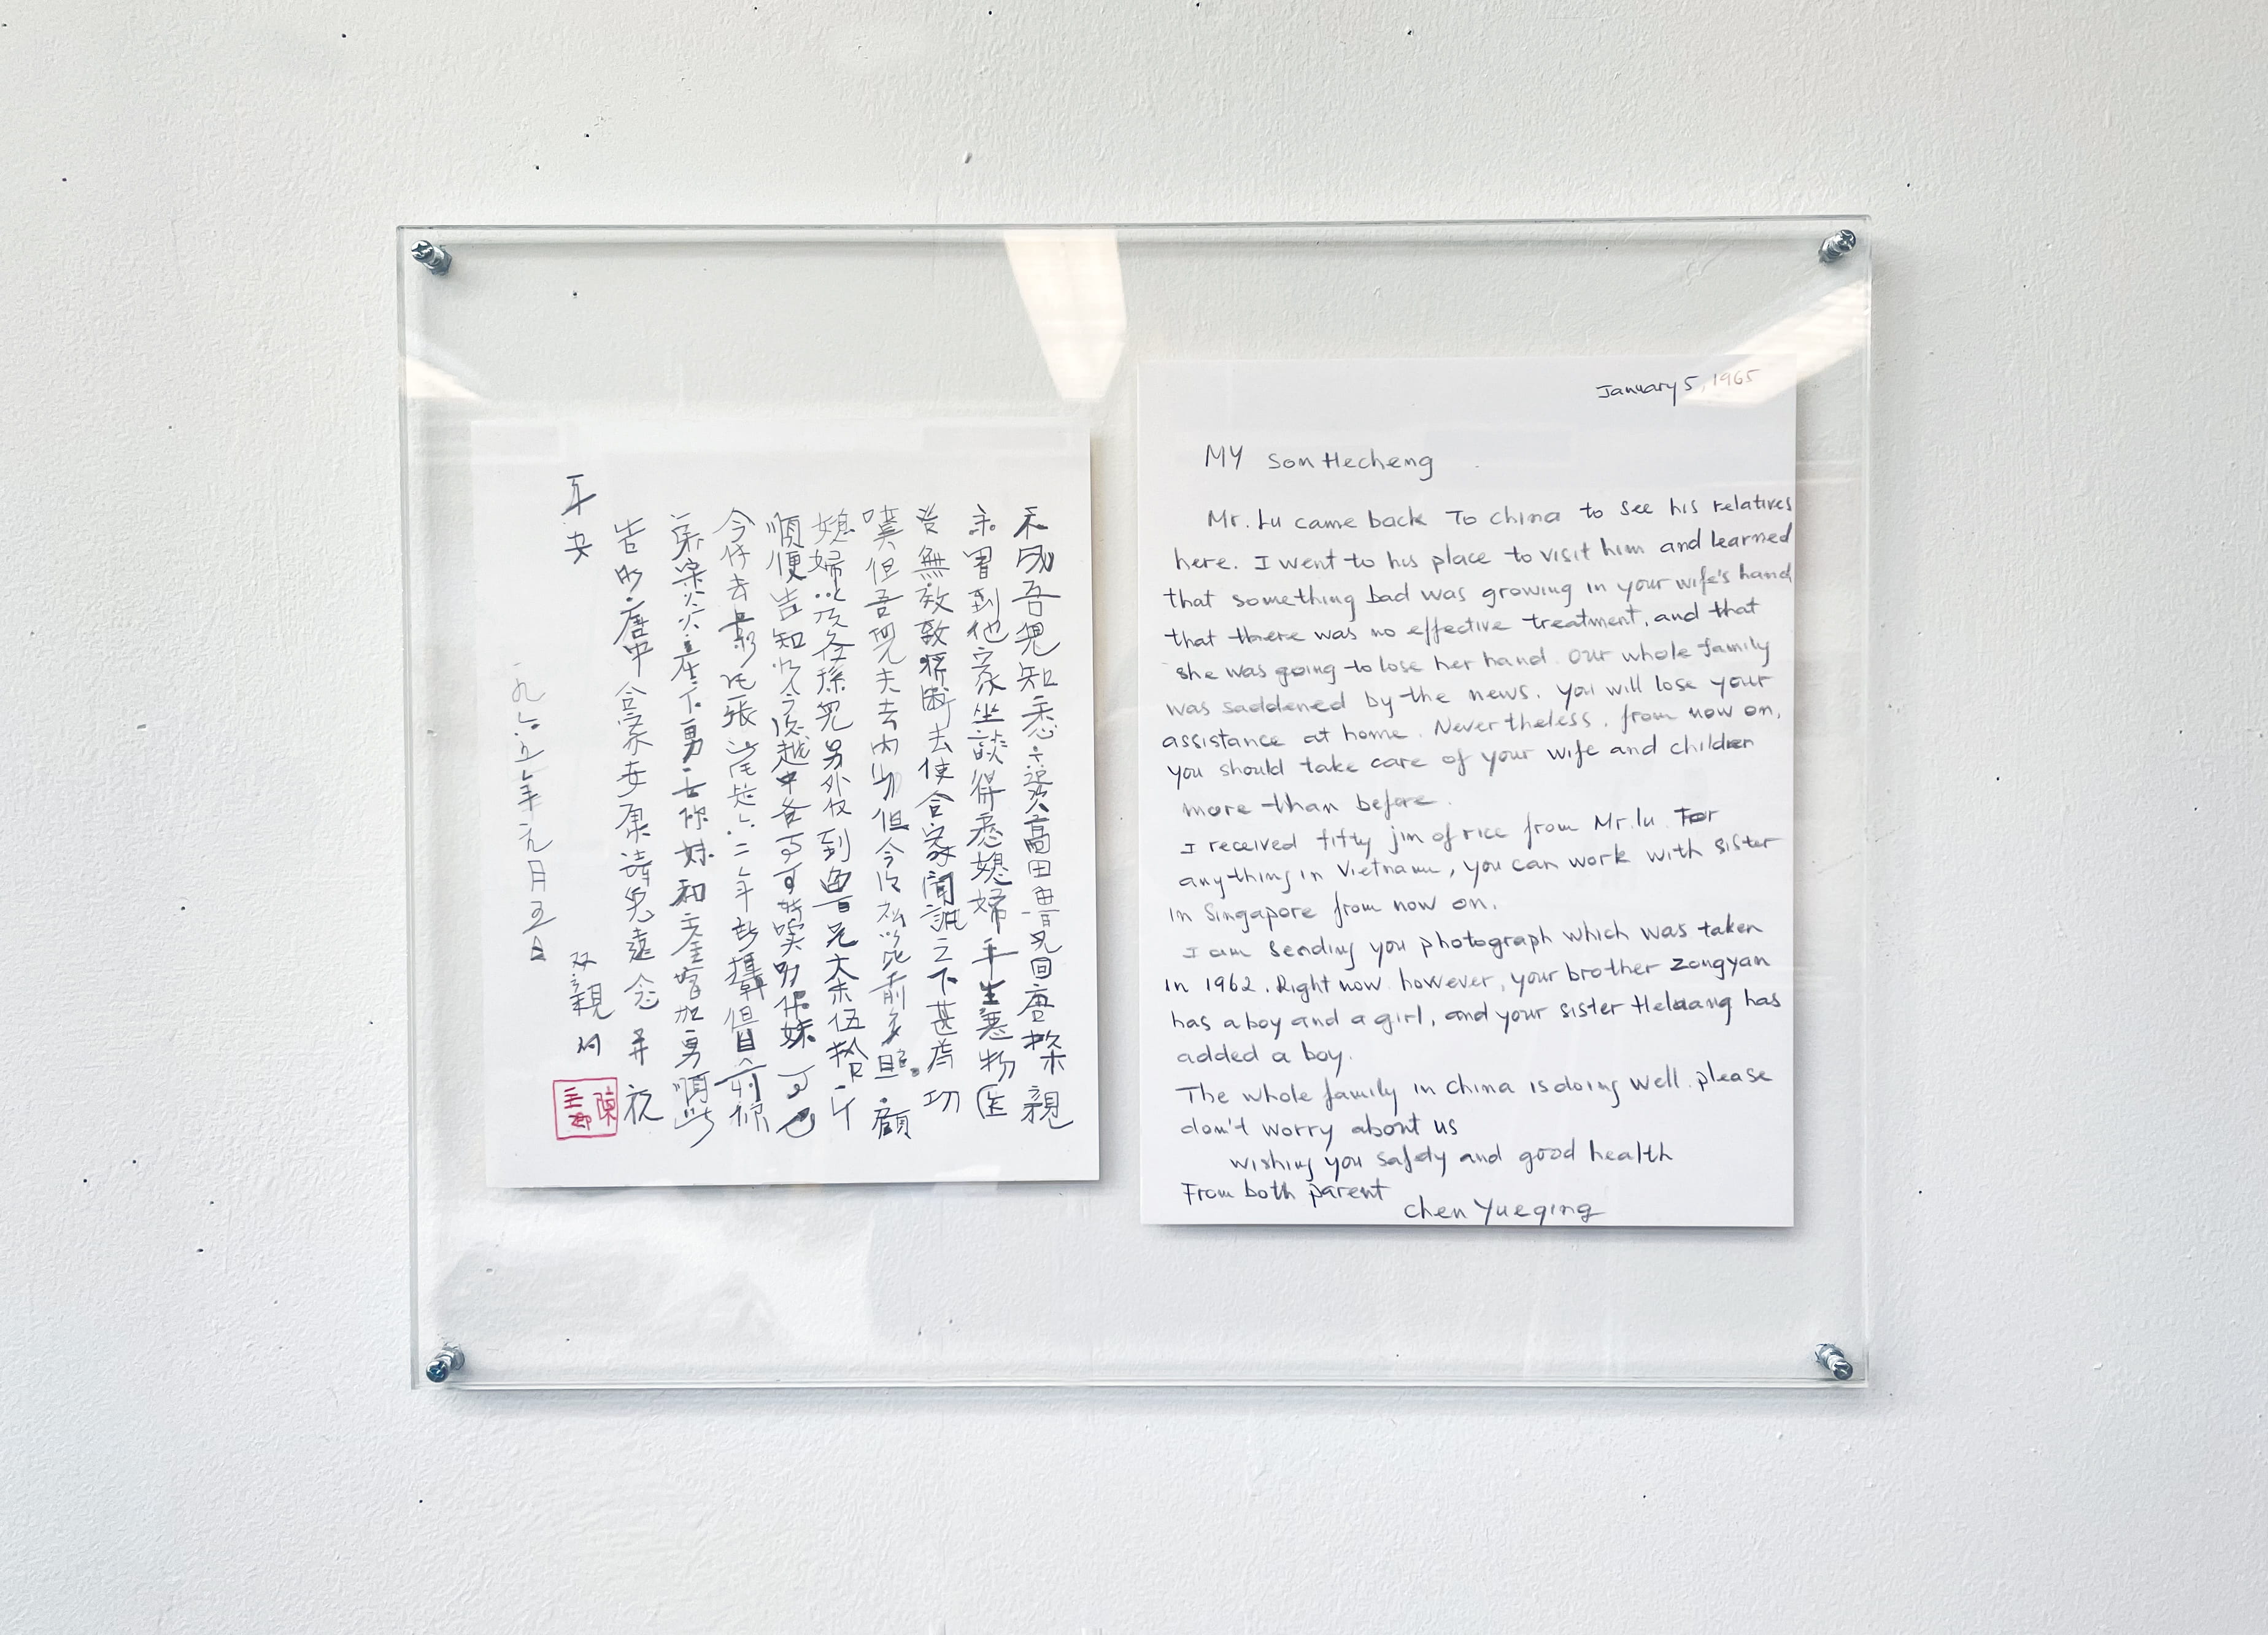 禾成吾兒知悉高田曹兄回唐探親
余曾到他家坐談得悉媳婦手生惡物医
無效致將斷去使合家聞訊之下甚為切
嘆但吾兒失去内助但今后以比前多照顧
媳婦以及各孫兒另外收到曹兄大米伍拾斤
順便告知你今後越中各可妹可也
今付去影一張六二年攝但目前你
弟宗炎產下男女你妹和增加男順此
告明唐中合家安康請兒遠念并祝
平安
双親付
陳
一九六五年元月五日
January 5, 1965
MY Son Hecheng
Mr. Lu came back To china to see his relatives
here. I went to his place to visit him and learned
that something bad was growing in your wife's hand
that there was no effective treatment, and that
she was going to lose her hand. Our whole family
was saddened by the news. you will lose your
assistance at home. Nevertheless, from now on,
you should take care of your wife and children
more than before.
I received fifty jin of rice from Mr. lu. For
anything in Vietnam, you can work with sister
in Singapore from now on.
I am sending you photograph which was taken
in 1962. Right now however, your brother Zongyan
has a boy and a girl, and your sister has
added a boy.
The whole family in China is doing well. please
don't worry about us
wishing you safety and good health
From both parent
chen Yueqing